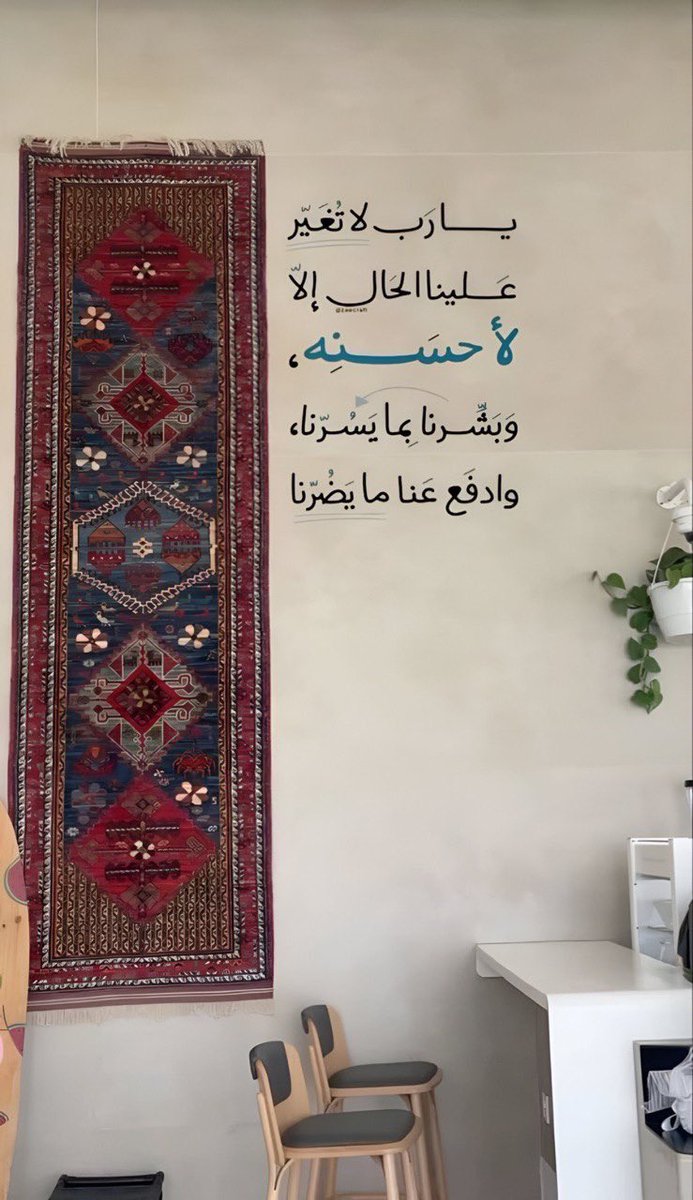 يــــارَب لا تُغَيّر
عَــلينا الحَال إلاّ
لأ حسَــــنِه ،
وَبَشِّــرنا بِما يَسُرّنا،
وادفَع عَنا ما يَضُرّنا